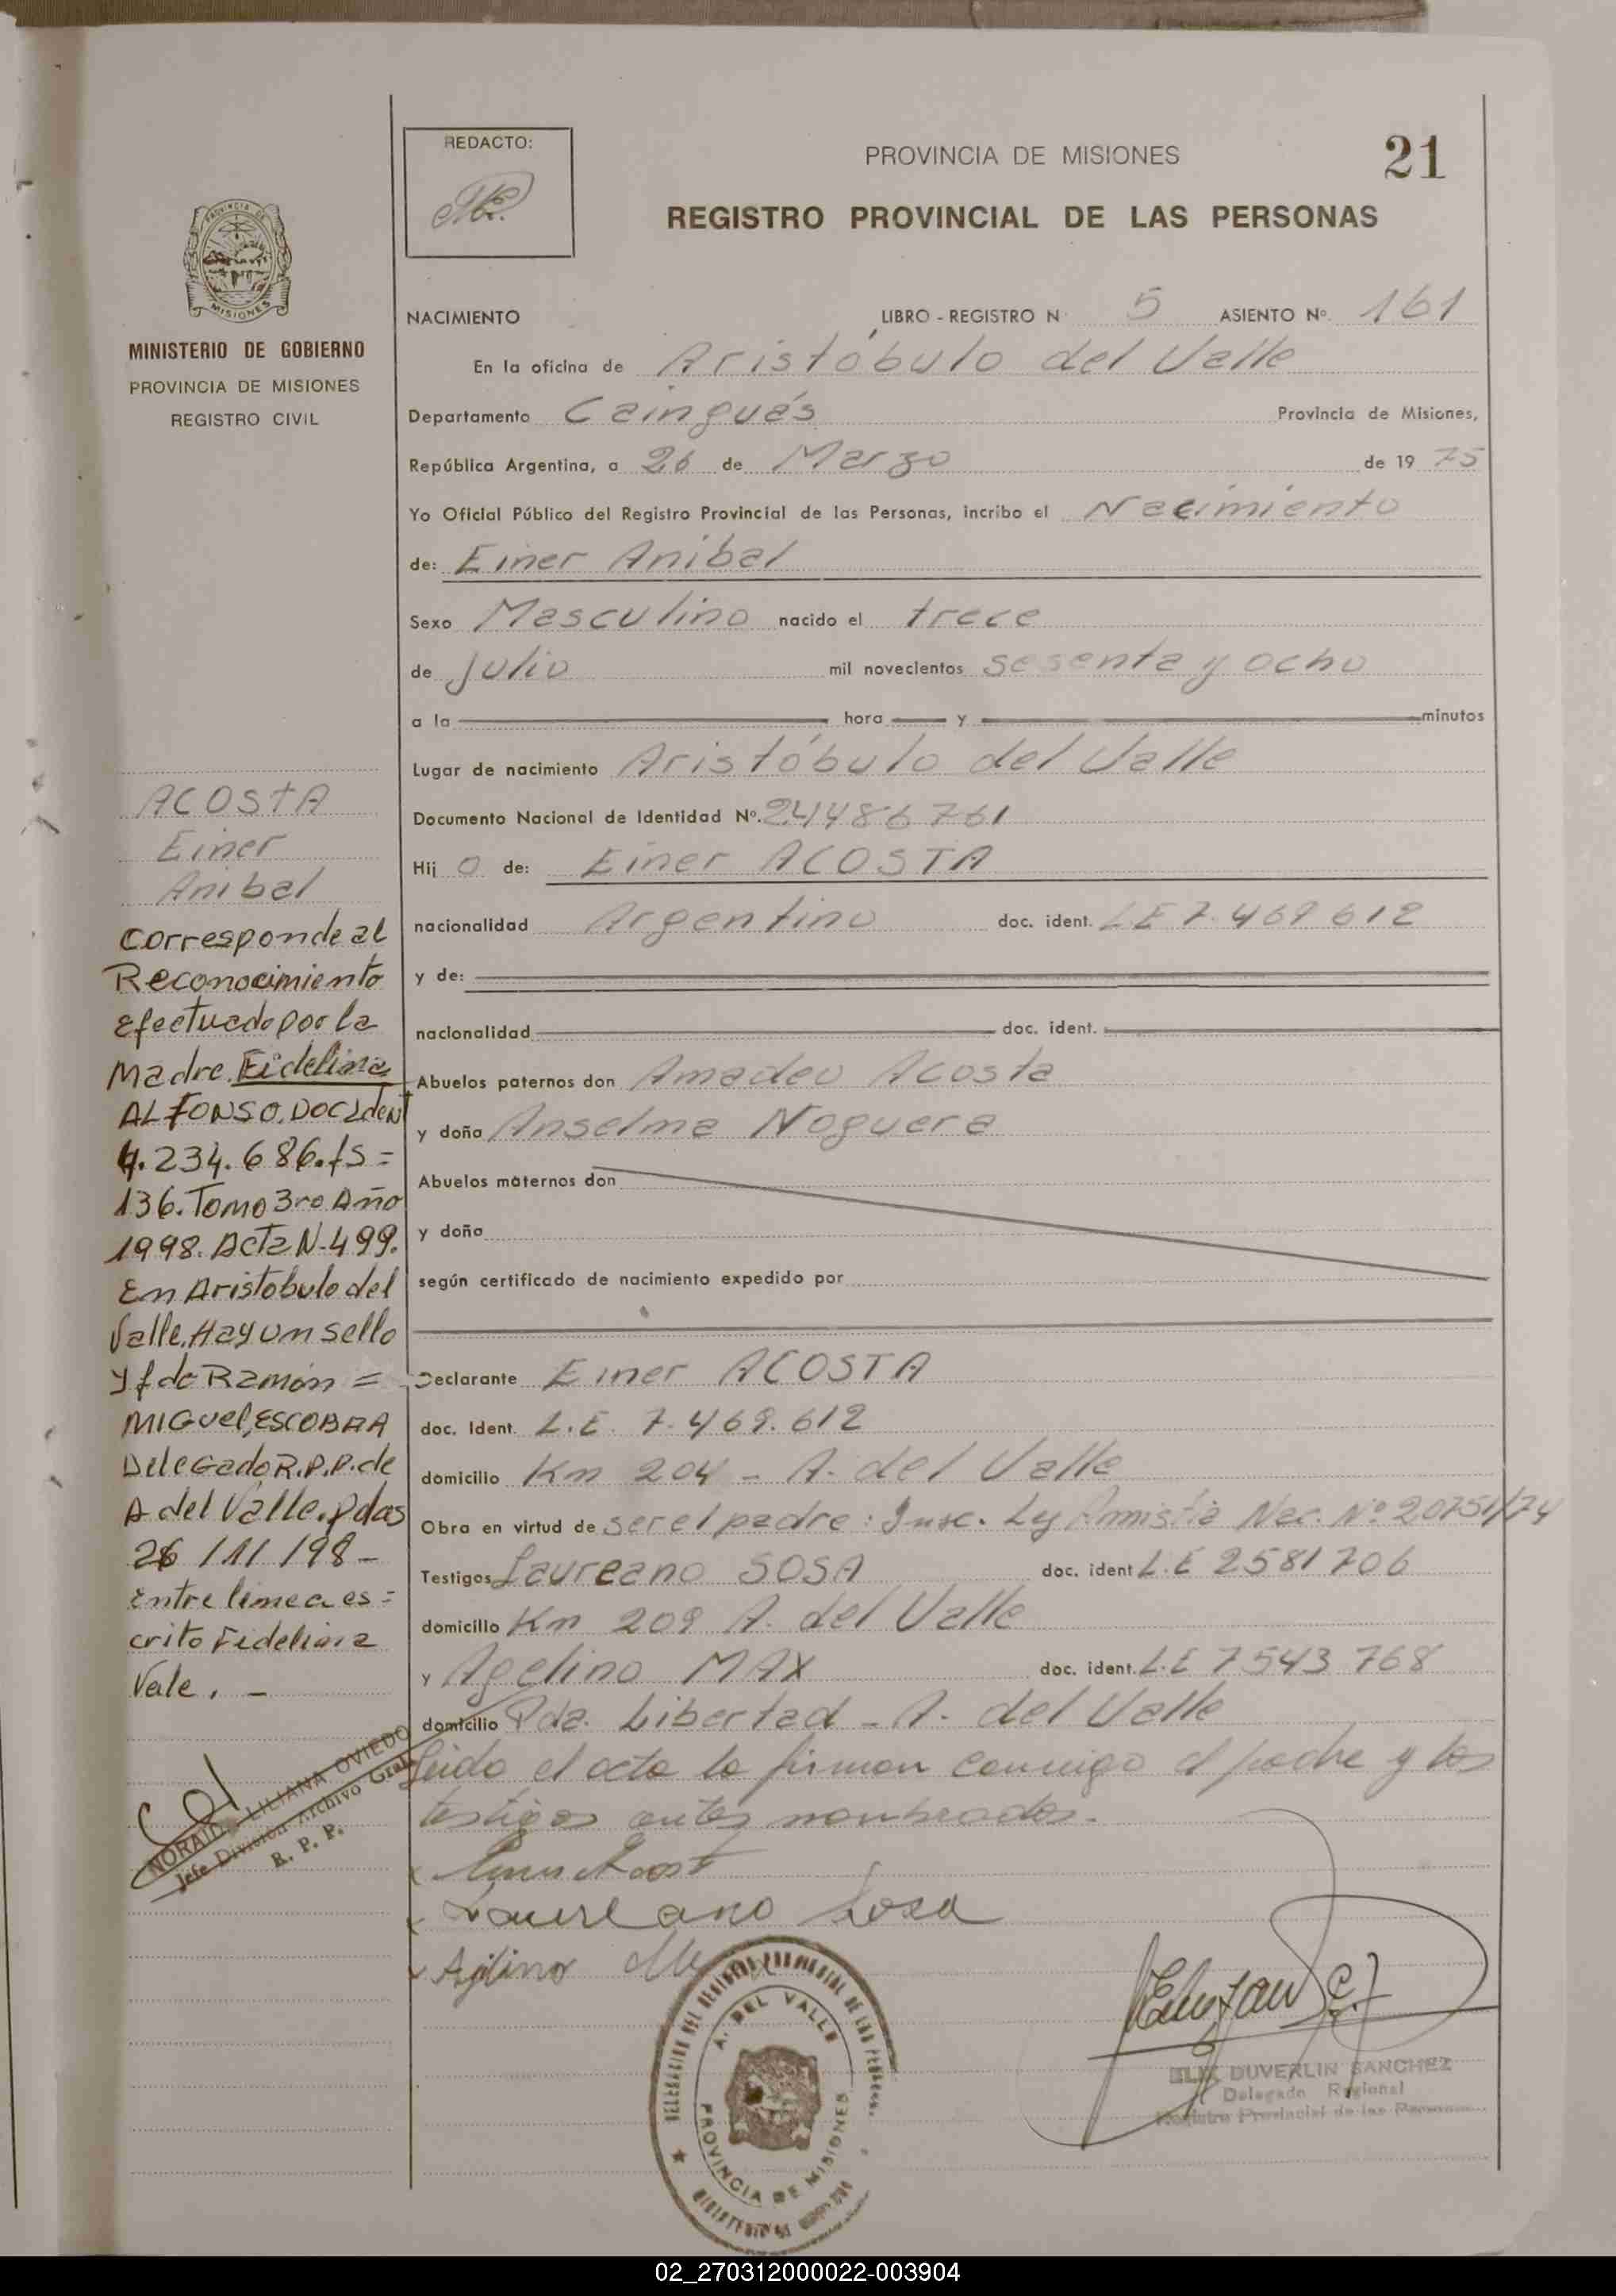 REDACTO:
PROVINCIA DE MISIONES
21
REGISTRO PROVINCIAL DE LAS PERSONAS
PROVINCIA DE
MISIONES
MINISTERIO DE GOBIERNO
PROVINCIA DE MISIONES
REGISTRO CIVIL
NACIMIENTO LIBRO - REGISTRO N 5 ASIENTO Nº 161
En la oficina de Aristóbulo del Valle
Departamento Cainguás Provincia de Misiones,
República Argentina, a 26 de Marzo de 19 75
Yo Oficial Público del Registro Provincial de las Personas, incribo el Nacimiento
de: Einer Anibal
Sexo Masculino nacido el trece
de Julio mil novecientos sesenta y ocho
a la hora y minutos
Lugar de nacimiento Aristóbulo del Valle
Documento Nacional de Identidad Nº. 24486761
Hij o de: Einer ACOSTA
nacionalidad Argentino doc. ident. LE 7.469612
y de:
nacionalidad doc. ident.
Abuelos paternos don Amadeo Acosta
y doña Anselma Noguera
Abuelos maternos don
y doña
según certificado de nacimiento expedido por
Declarante Einer ACOSTA
doc. Ident. L.E. 7.469.612
domicilio Km 204 - A. del Valle
Obra en virtud de ser el padre: Insc. Ley Amistia Nac. Nº 20751/74
Testigos Laureano SOSA doc. ident L.E 2581706
domicilio Km 209 A. del Valle
y Agelino MAX doc. ident. L.E 7543768
domicilio Pda. Libertad - A. del Valle
Leido el acta la firman conmigo el padre y los
testigos antes nombrados.
Laureano Sosa
ACOSTA
Einer
Anibal
Corresponde al
Reconocimiento
efectuado por la
Madre. Fidelina
ALFONSO. DOC IdeNt
4.234.686. fs =
136. Tomo 3ro Año
1998. Acta N-499.
En Aristobulo del
Valle. Hay un sello
y fdo Ramón =
MIGUEL, ESCOBAR
Delegado R.P.P. de
A del Valle. Pdas
26 /11 /98 -
Entre linea es =
crito Fidelina
Vale. -
NORAIDA LILIANA OVIEDO
Jefe División Archivo Gral.
R. P. P.
DELEGACION DEL REGISTRO PROVINCIAL DE LAS PERSONAS
A. DEL VALLE
PROVINCIA DE MISIONES
DUVERLIN SANCHEZ
Delegado Regional
Registro Provincial de las Personas
02_270312000022-003904